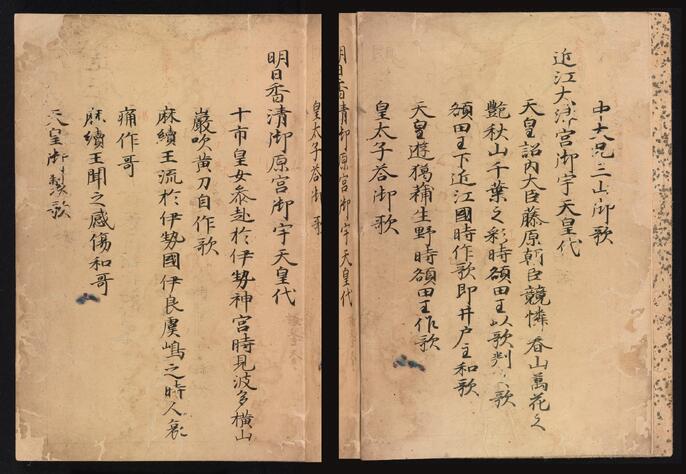 中大兄三山御歌
近江大津宮御宇天皇代
天皇詔内大臣藤原朝臣競憐春山萬花之
艶秋山千葉之彩時額田王以歌判之歌
額田王下近江國時作歌即井戸王和歌
天皇遊獦蒲生野時額田王作歌
皇太子荅御歌
明日香清御原宮御宇天皇代
皇太子荅御歌
明日香清御原宮御宇天皇代
十市皇女参赴於伊勢神宮時見波多横山
巌吹黄刀自作歌
麻續王流於伊勢國伊良虞嶋之時人哀
痛作哥
麻續王聞之感傷和哥
天皇御製歌